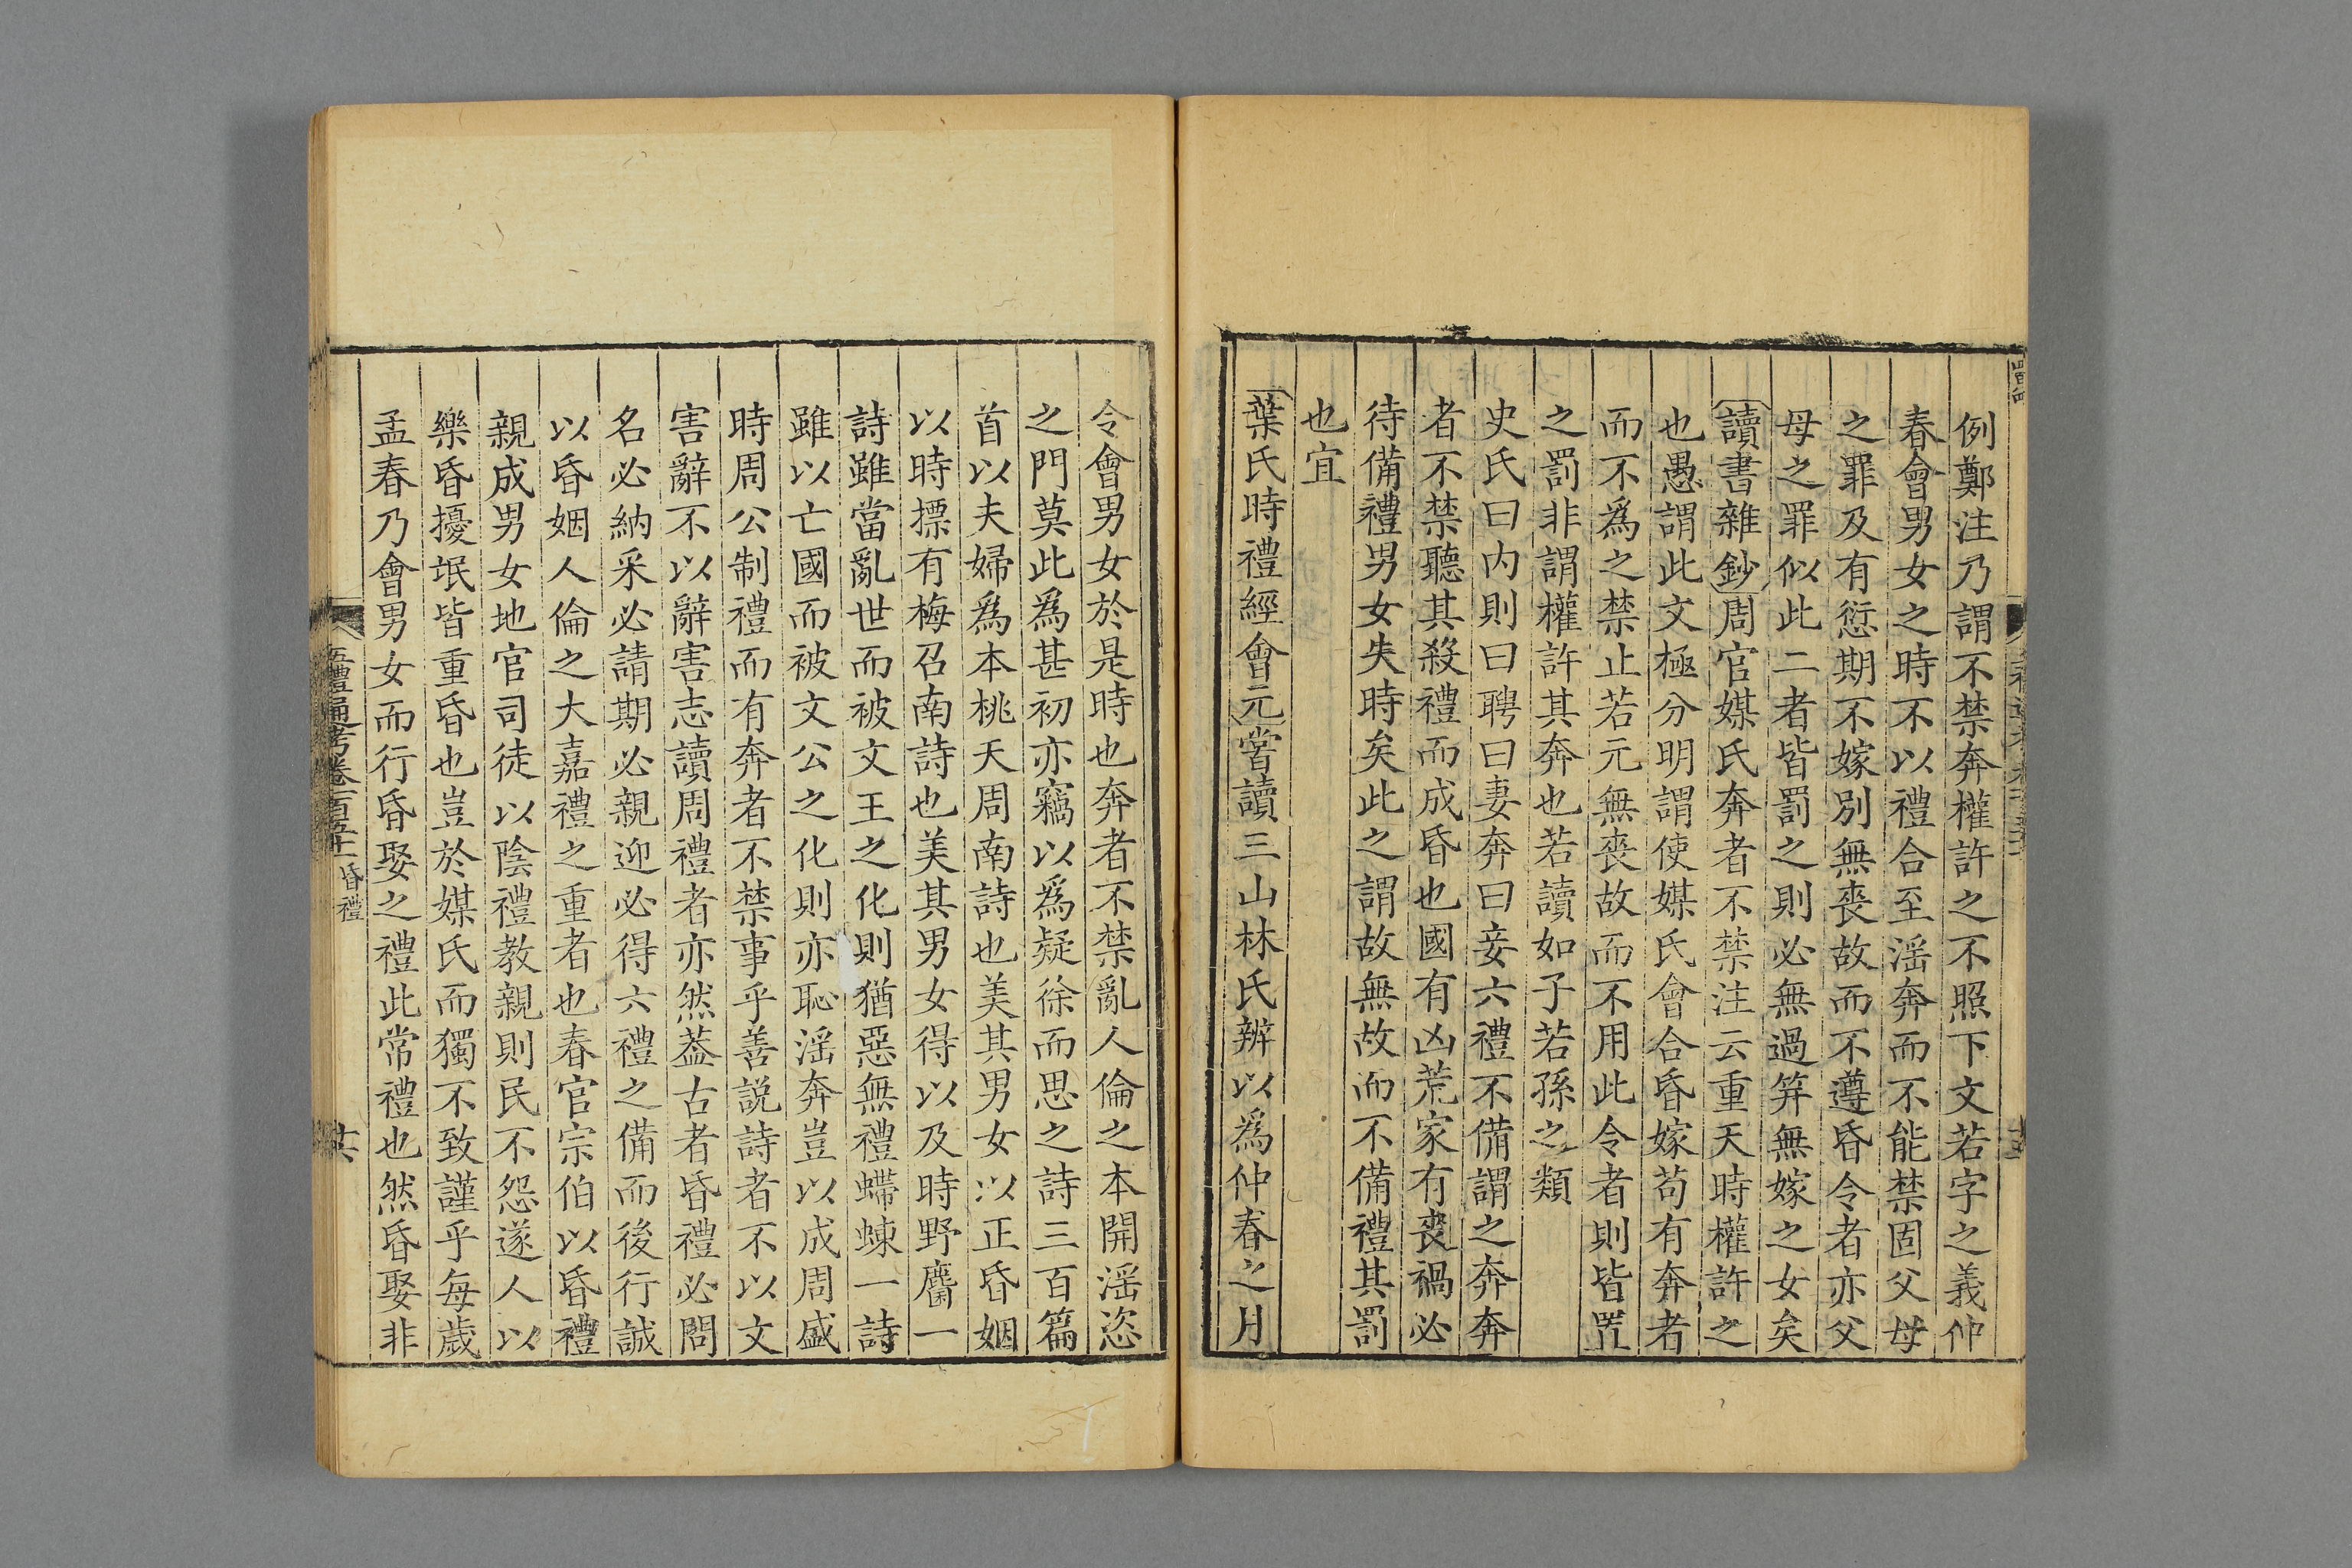 例鄭注乃謂不禁奔權許之不照下文若字之義仲
春會男女之時不以禮合至淫奔而不能禁固父母
之罪及有愆期不嫁別無喪故而不遵昏令者亦父
母之罪似此二者皆罰之則必無過筓無嫁之女矣
讀書雜鈔周官媒氏奔者不禁注云重天時權許之
也愚謂此文極分明謂使媒氏會合昏嫁苟有奔者
而不為之禁止若元無喪故而不用此令者則皆置
之罰非謂權許其奔也若讀如子若孫之類
史氏曰内則曰聘曰妻奔曰妾六禮不備謂之奔奔
者不禁聽其殺禮而成昏也國有凶荒家有喪禍必
待備禮男女失時矣此之謂故無故而不備禮其罰
也宜
葉氏時禮經會元嘗讀三山林氏辨以為仲春之月
令會男女於是時也奔者不禁亂人倫之本開淫恣
之門莫此為甚初亦竊以為疑徐而思之詩三百篇
首以夫婦為本桃夭周南詩也美其男女以正昏姻
以時摽有梅召南詩也美其男女得以及時野麕一
詩雖當亂世而被文王之化則猶惡無禮蝃蝀一詩
雖以亡國而被文公之化則亦恥淫奔豈以成周盛
時周公制禮而有奔者不禁事乎善説詩者不以文
害辭不以辭害志讀周禮者亦然葢古者昏禮必問
名必納采必請期必親迎必得六禮之備而後行誠
以昏姻人倫之大嘉禮之重者也春官宗伯以昏禮
親成男女地官司徒以陰禮教親則民不怨遂人以
樂昏擾氓皆重昏也豈於媒氏而獨不致謹乎每歲
孟春乃會男女而行昏娶之禮此常禮也然昏娶非
五禮通考卷一百五十一 昏禮 共